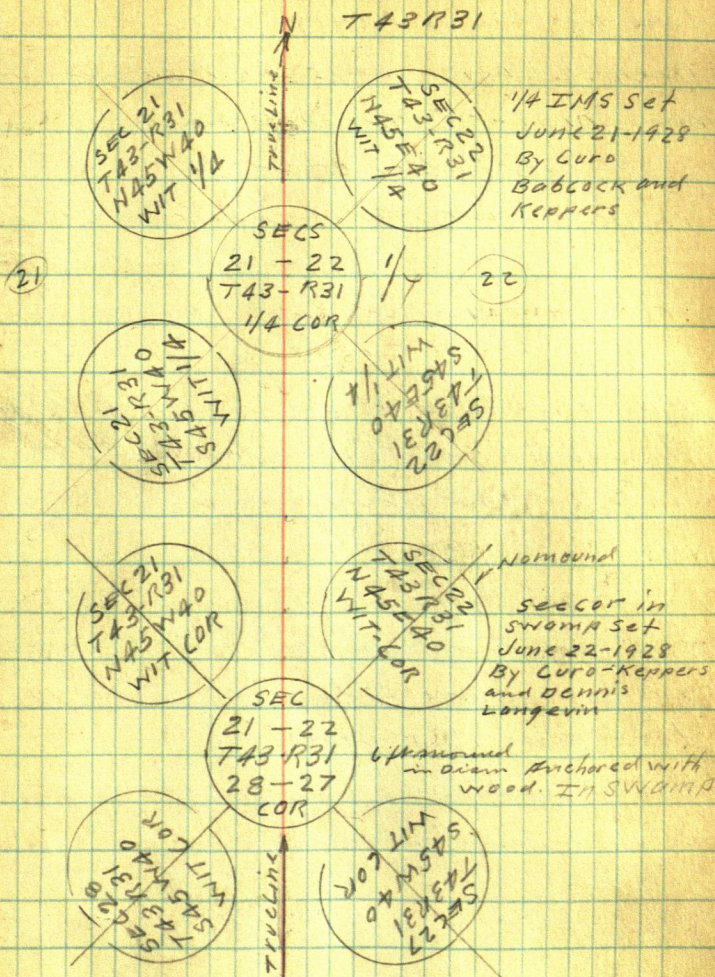 N T43R31
SEC 21
T43-R31
N45W40
WIT 1/4
TrueLine
SEC22
T43-R31
N45E40
WIT 1/4
1/4 IMS Set
June 21-1928
By Curo
Babcock and
Keppers
21
SECS
21 - 22
T43-R31
1/4 COR
1/4
22
SEC21
T43-R31
S45W40
WIT 1/4
SEC22
T43R31
S45E40
WIT 1/4
SEC21
T43-R31
N45W40
WIT COR
SEC22
T43R31
N45E40
WIT-COR
Nomound
SecCor in
Swamp Set
June 22-1928
By Curo-Keppers
and Dennis
Langevin
SEC
21 - 22
T43-R31
28-27
COR
6ft mound
in Diam Anchored with
wood. In Swamp
SEC28
T43R31
S45W40
WIT COR
SEC27
T43R31
S45W40
WIT COR
TrueLine